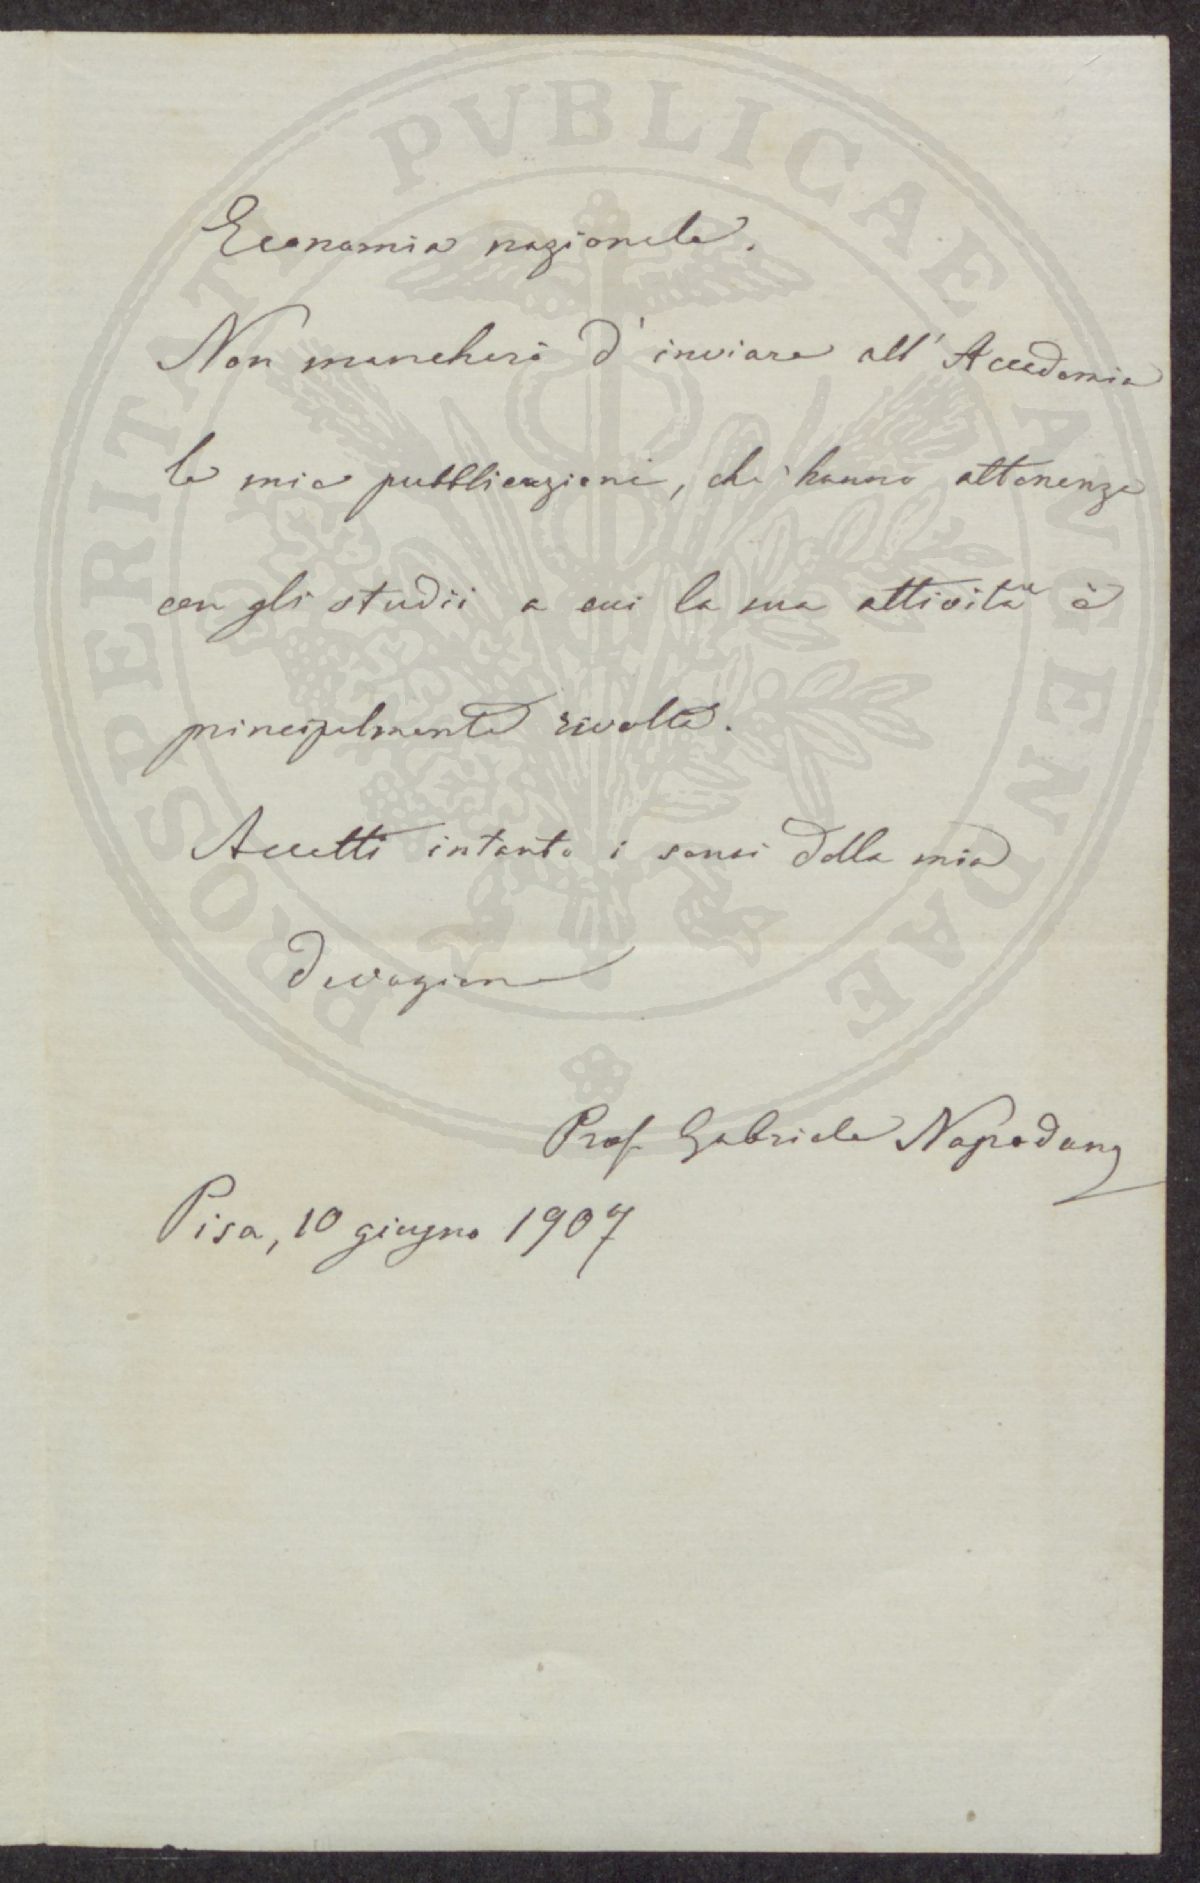 Economia nazionale.
Non mancherò d'inviare all'Accademia
le mie pubblicazioni, che hanno attenenze
con gli studii a cui la sua attività è
principalmente rivolta.
Accetti intanto i sensi della mia
devozione
Prof. Gabriele Napodano
Pisa, 10 giugno 1907
PROSPERITATI PVBLICAE AVGENDAE